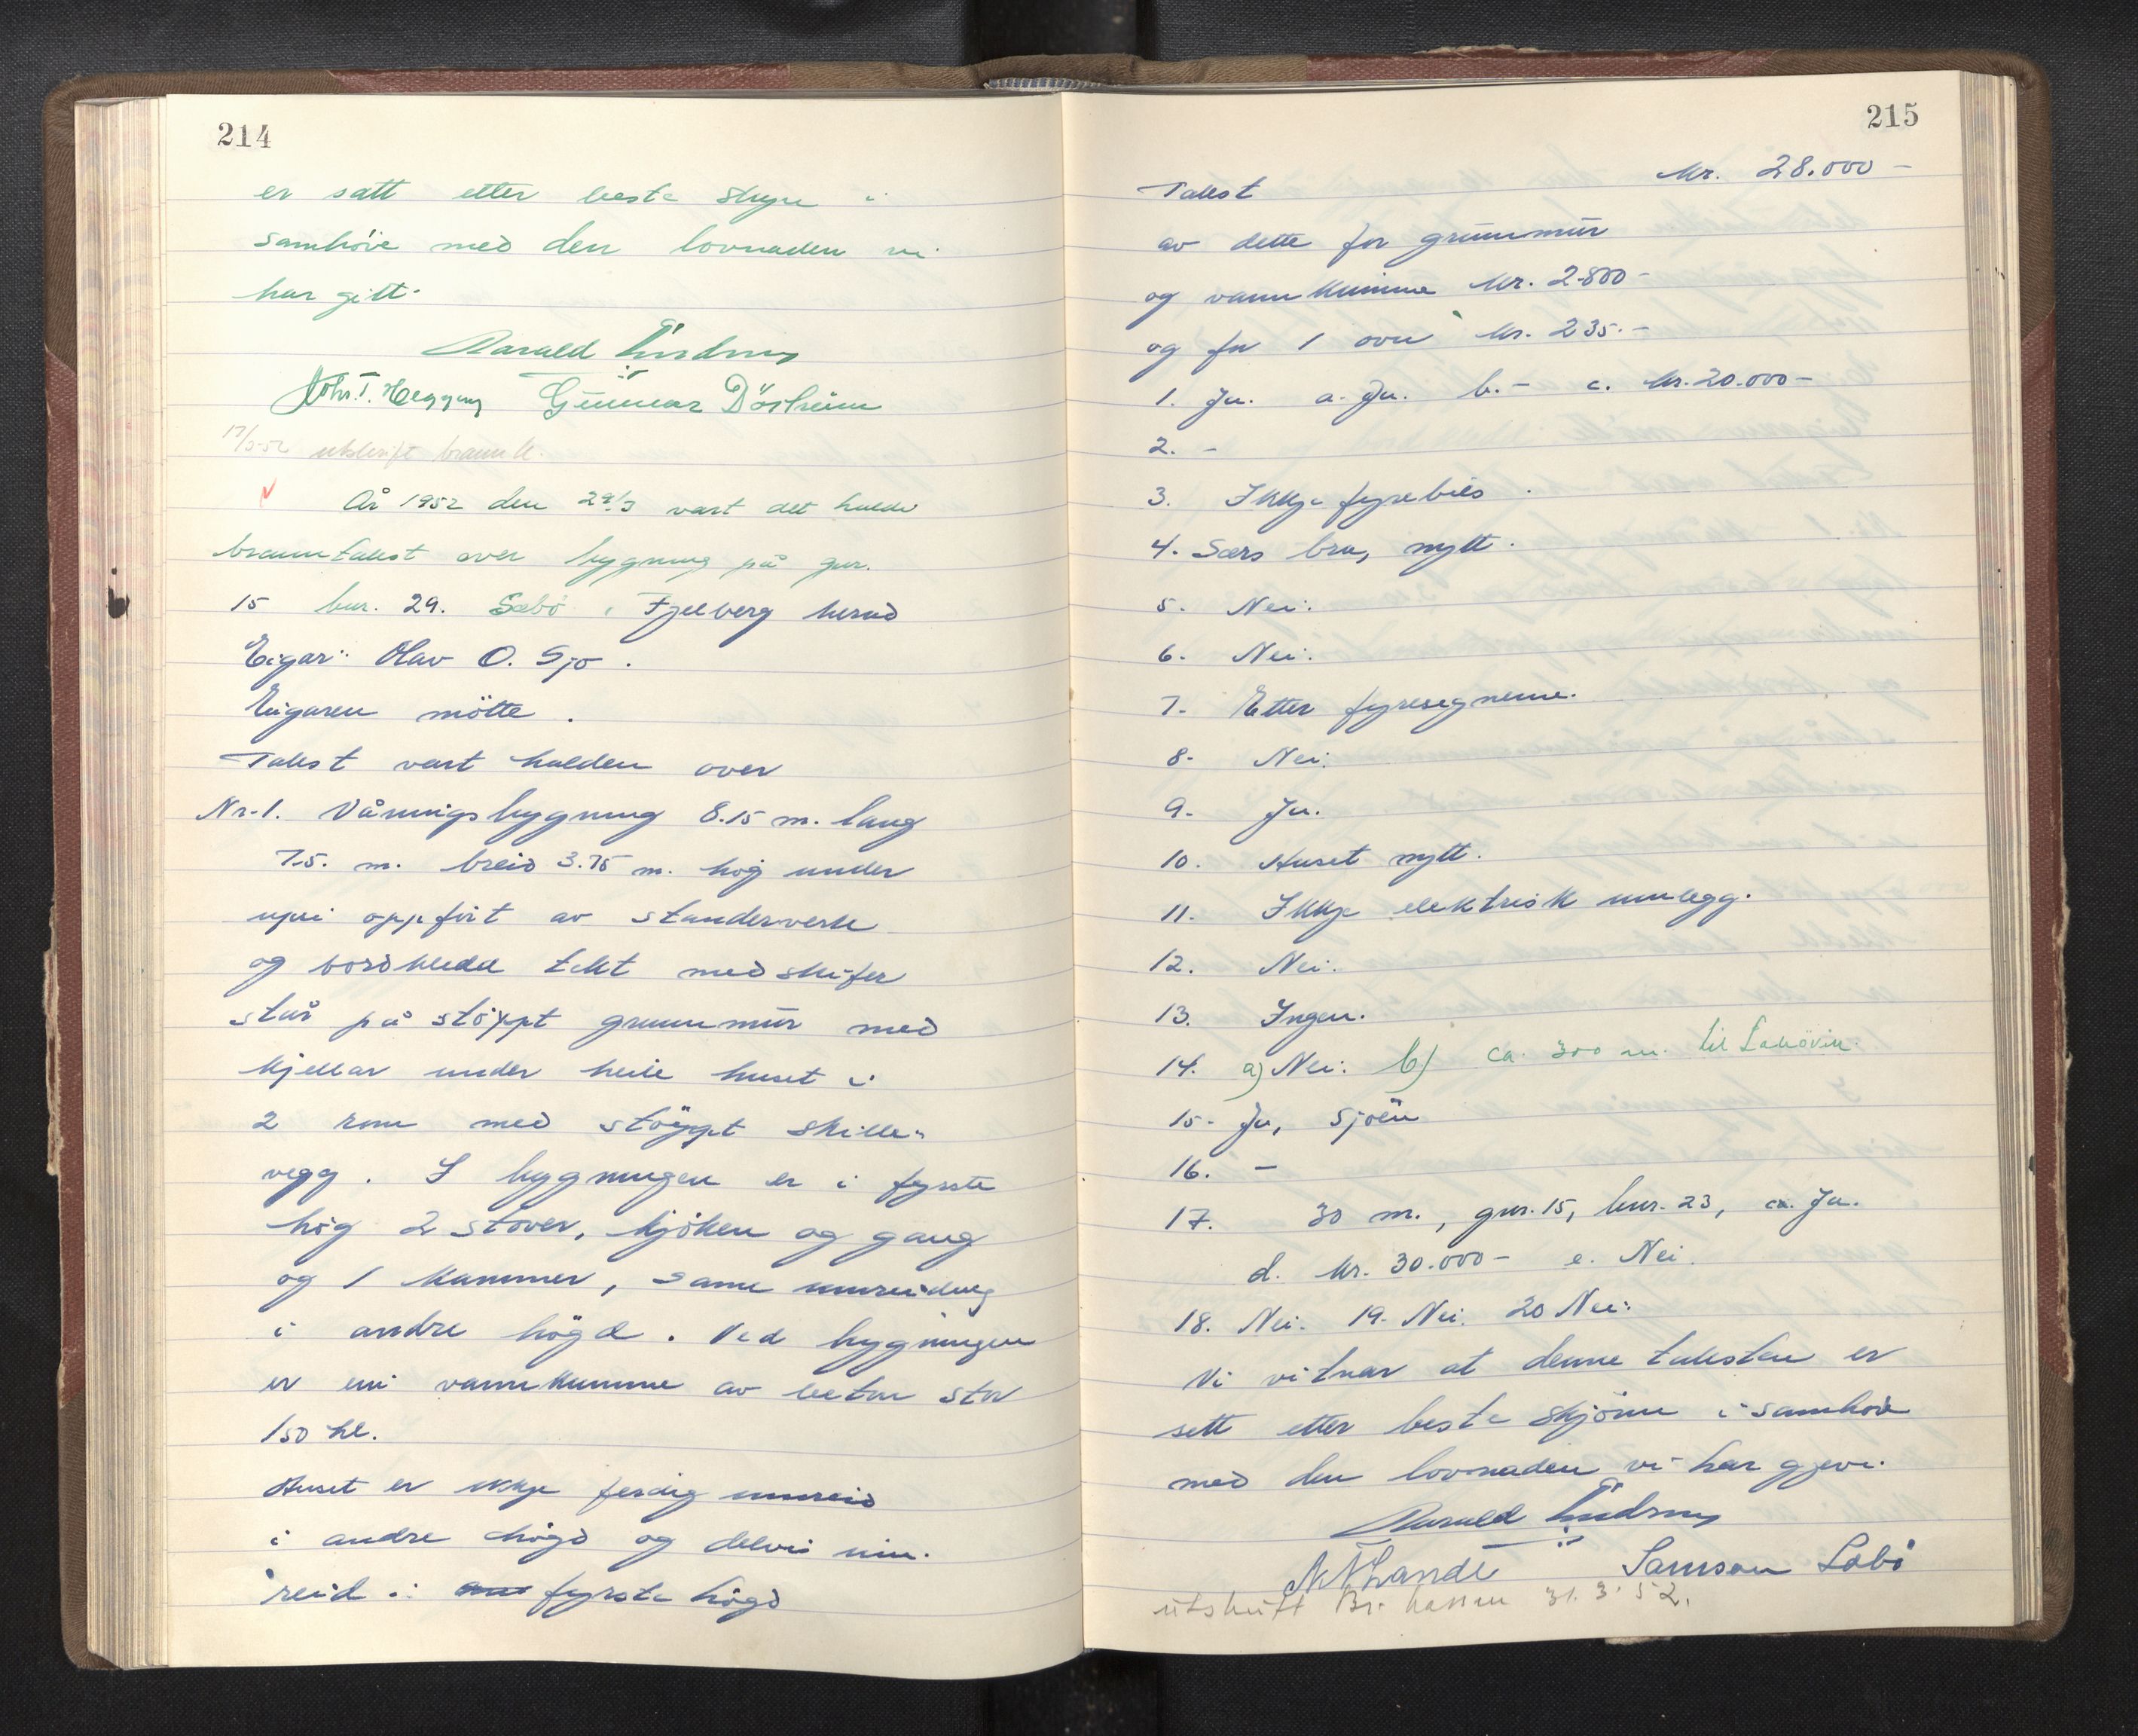 214
er satt etter beste skjøn i
samhøve med den lovnaden vi
har gitt.
Harald
Gunnar
17/5-52 utskrift brannk.
År 1952 den 29/3 vart det halde
branntakst over bygning på gnr.
15 bnr. 29. Sæbö i Fjelberg herad
Eigar: Olav O. Sjo.
Eigaren mötte.
Takst vart halden over
Nr. 1. Våningsbygning 8.15 m. lang
7.5. m. breid 3.75 m. høg under
upsi oppført av standerverk
og bordkledd tekt med skifer
står på stöypt grunnmur med
kjellar under heile huset i
2 rom med stöypt skille-
vegg. I bygningen er i fyrste
høg 2 stover, kjöken og gang
og 1 kammer, same innreiding
i andre högd. Ved bygningen
er ein vannkumme av betong stor
150 hl.
Huset er ikkje ferdig innreid
i andre høgd og delvis inn-
reid i fyrste høgd
215
Takst kr. 28.000 -
av dette for grunnmur
og vannkumme kr. 2.800 -
og for 1 ovn kr. 235.-
1. Ja. a. Ja. b. - c. kr. 20.000 -
2. -
3. Ikkje fyrebils.
4. Særs bra, nytt.
5. Nei.
6. Nei.
7. Etter fyresegnene.
8. Nei.
9. Ja.
10. Huset nytt.
11. Ikkje elektrisk innlegg.
12. Nei.
13. Ingen.
14. a) Nei. b) ca. 300 m. til
15. Ja, Sjöen
16. -
17. 30 m., gnr. 15, bnr. 23, Ja.
d. kr. 30.000 - e. Nei.
18. Nei. 19. Nei. 20 Nei.
Vi vitnar at denne taksten er
sett etter beste skjönn i samhøve
med den lovnaden vi har gjeve.
Harald
Samson Sæbö
utskrift Br. kassen 31.3.52.